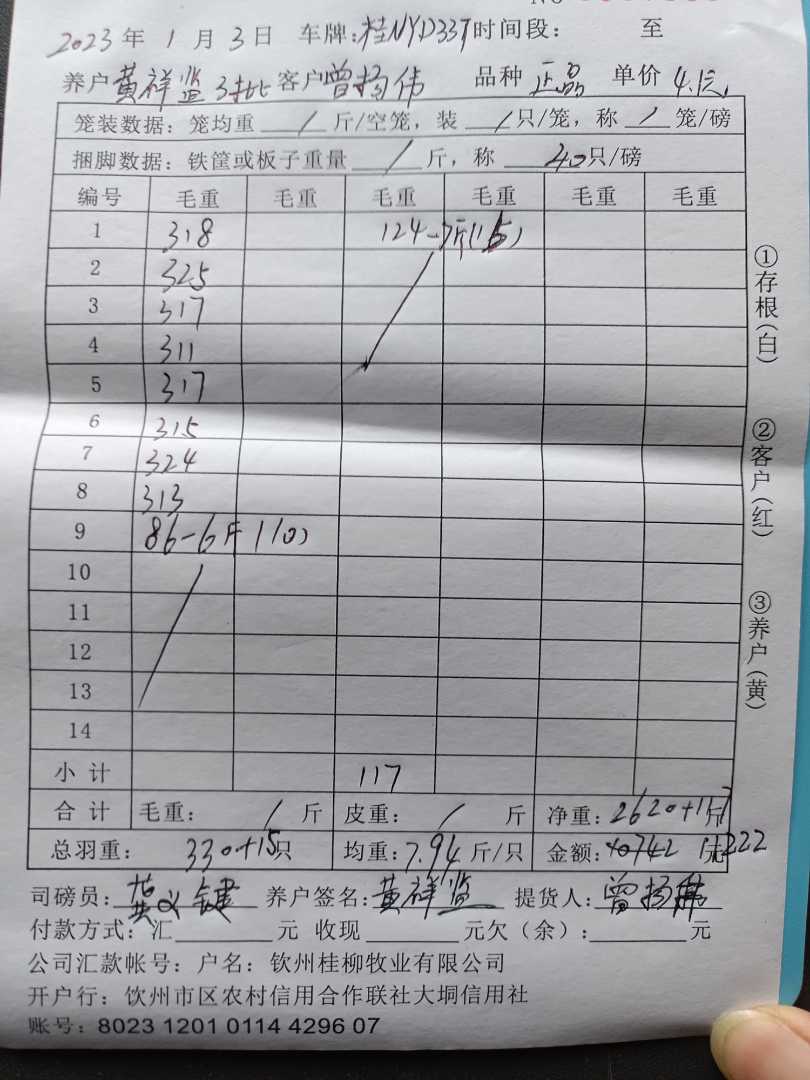 2023年 1月3日 车牌:桂NYD337时间段: 至
养户黄祥监3批 客户曾扬伟 品种 正品 单价 4.1元
笼装数据:笼均重 / 斤/空笼,装 / 只/笼,称 / 笼/磅
捆脚数据:铁筐或板子重量 / 斤,称 40只/磅
编号 毛重 毛重 毛重 毛重 毛重 毛重
1 318 124-7斤(15)
2 325
3 317
4 311
5 317
6 315
7 324
8 313
9 86-6斤(10)
10
11
12
13
14
小计 117
合计 毛重: / 斤 皮重: / 斤 净重:2620+117斤
总羽重: 330+15只 均重:7.94斤/只 金额: 元
司磅员: 养户签名:黄祥监 提货人:曾扬伟
付款方式:汇 元 收现 元欠(余): 元
公司汇款帐号:户名:钦州桂柳牧业有限公司
开户行:钦州市区农村信用合作联社大垌信用社
账号:8023 1201 0114 4296 07
①存根(白)
②客户(红)
③养户(黄)